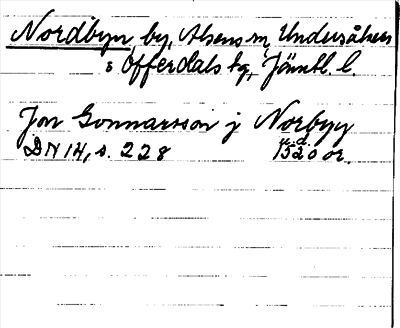 Nordbyn, by, Alsens sn, Undersåkers
o Offerdals tg, Jämtl. l.
Jon Gonnarsson j Norbyy
u.d.
DN 14, s. 228 1520 or.